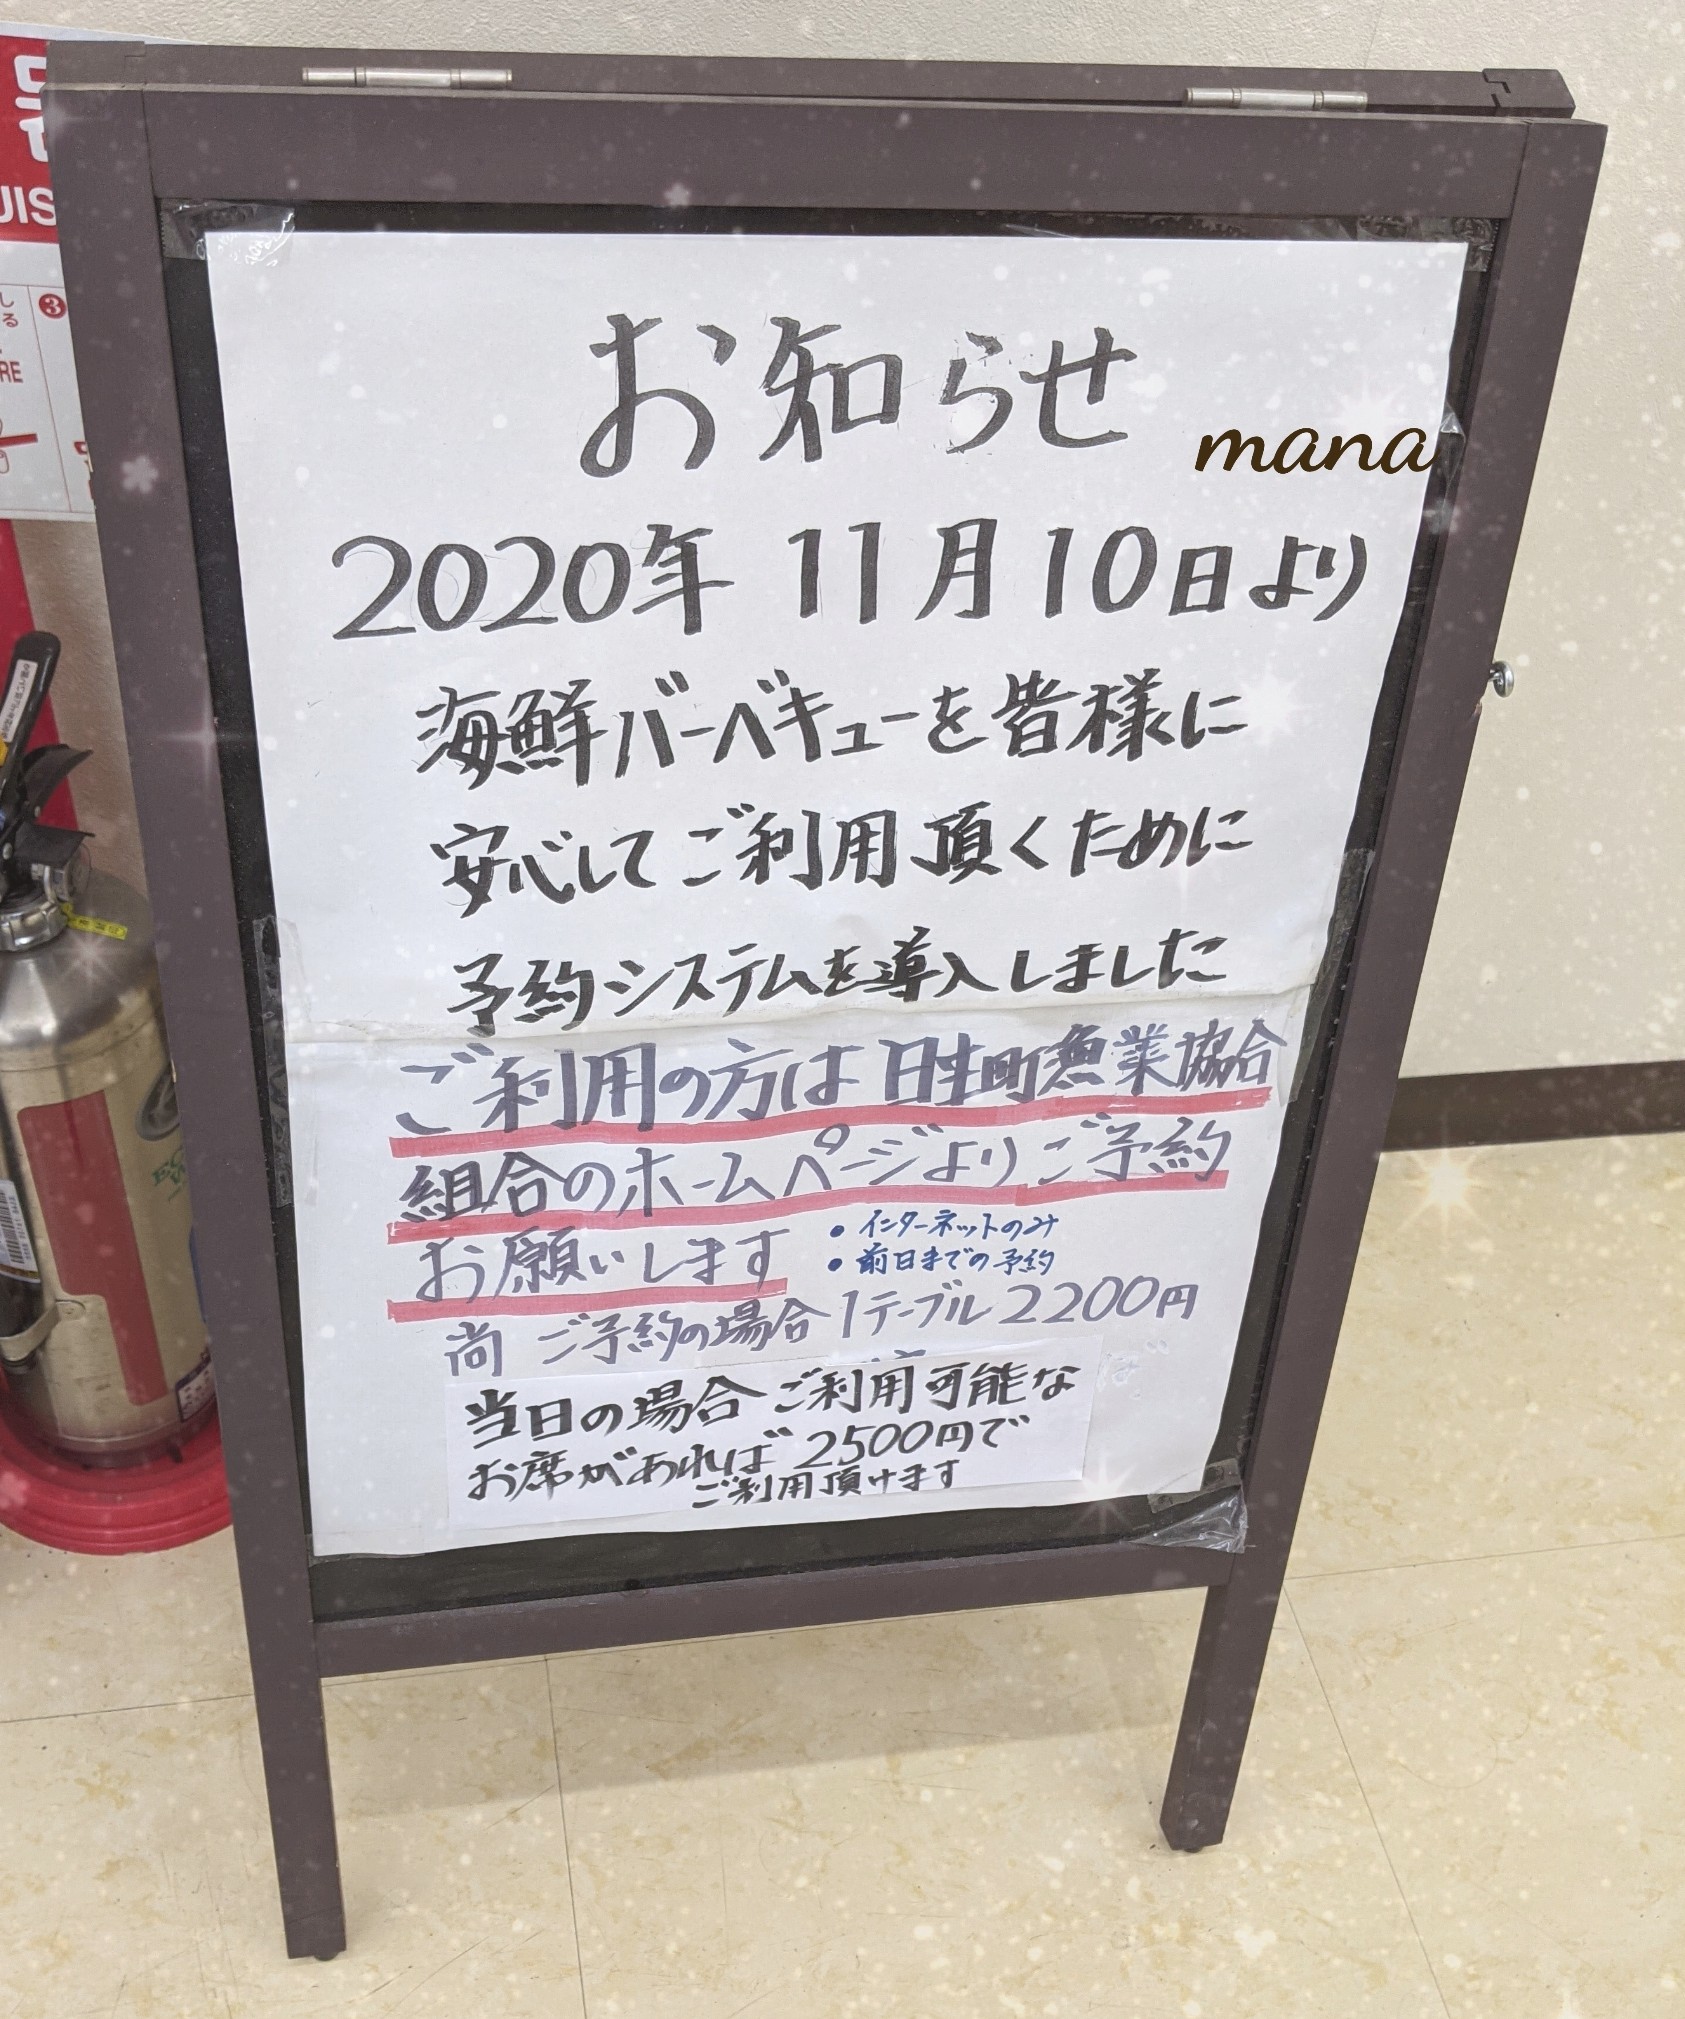 お知らせ
mana
2020年 11月10日より
海鮮バーベキューを皆様に
安心してご利用頂くために
予約システムを導入しました
ご利用の方は日生町漁業協合
組合のホームページよりご予約
お願いします
・インターネットのみ
・前日までの予約
尚 ご予約の場合1テーブル2200円
当日の場合ご利用可能な
お席があれば2500円で
ご利用頂けます